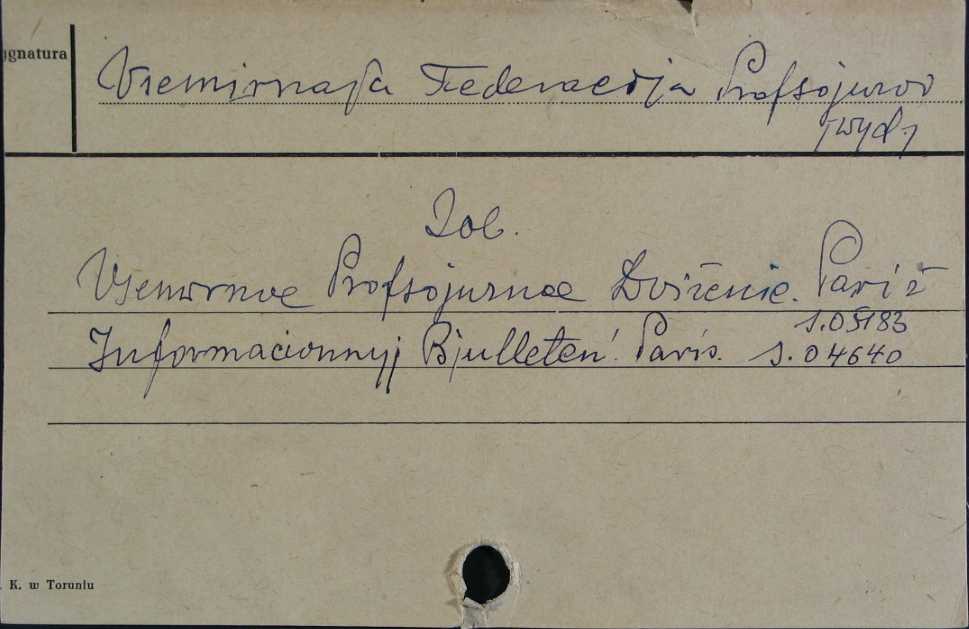 ygnatura
Vsemirnaja Federacija Profsojuzov
[wyd.]
Zob.
Vsemirnoe Profsojuznoe Dviženie. Pariž
s.05183
Informacionnyj Bjulleten'. Paris. s.04640
K. w Toruniu